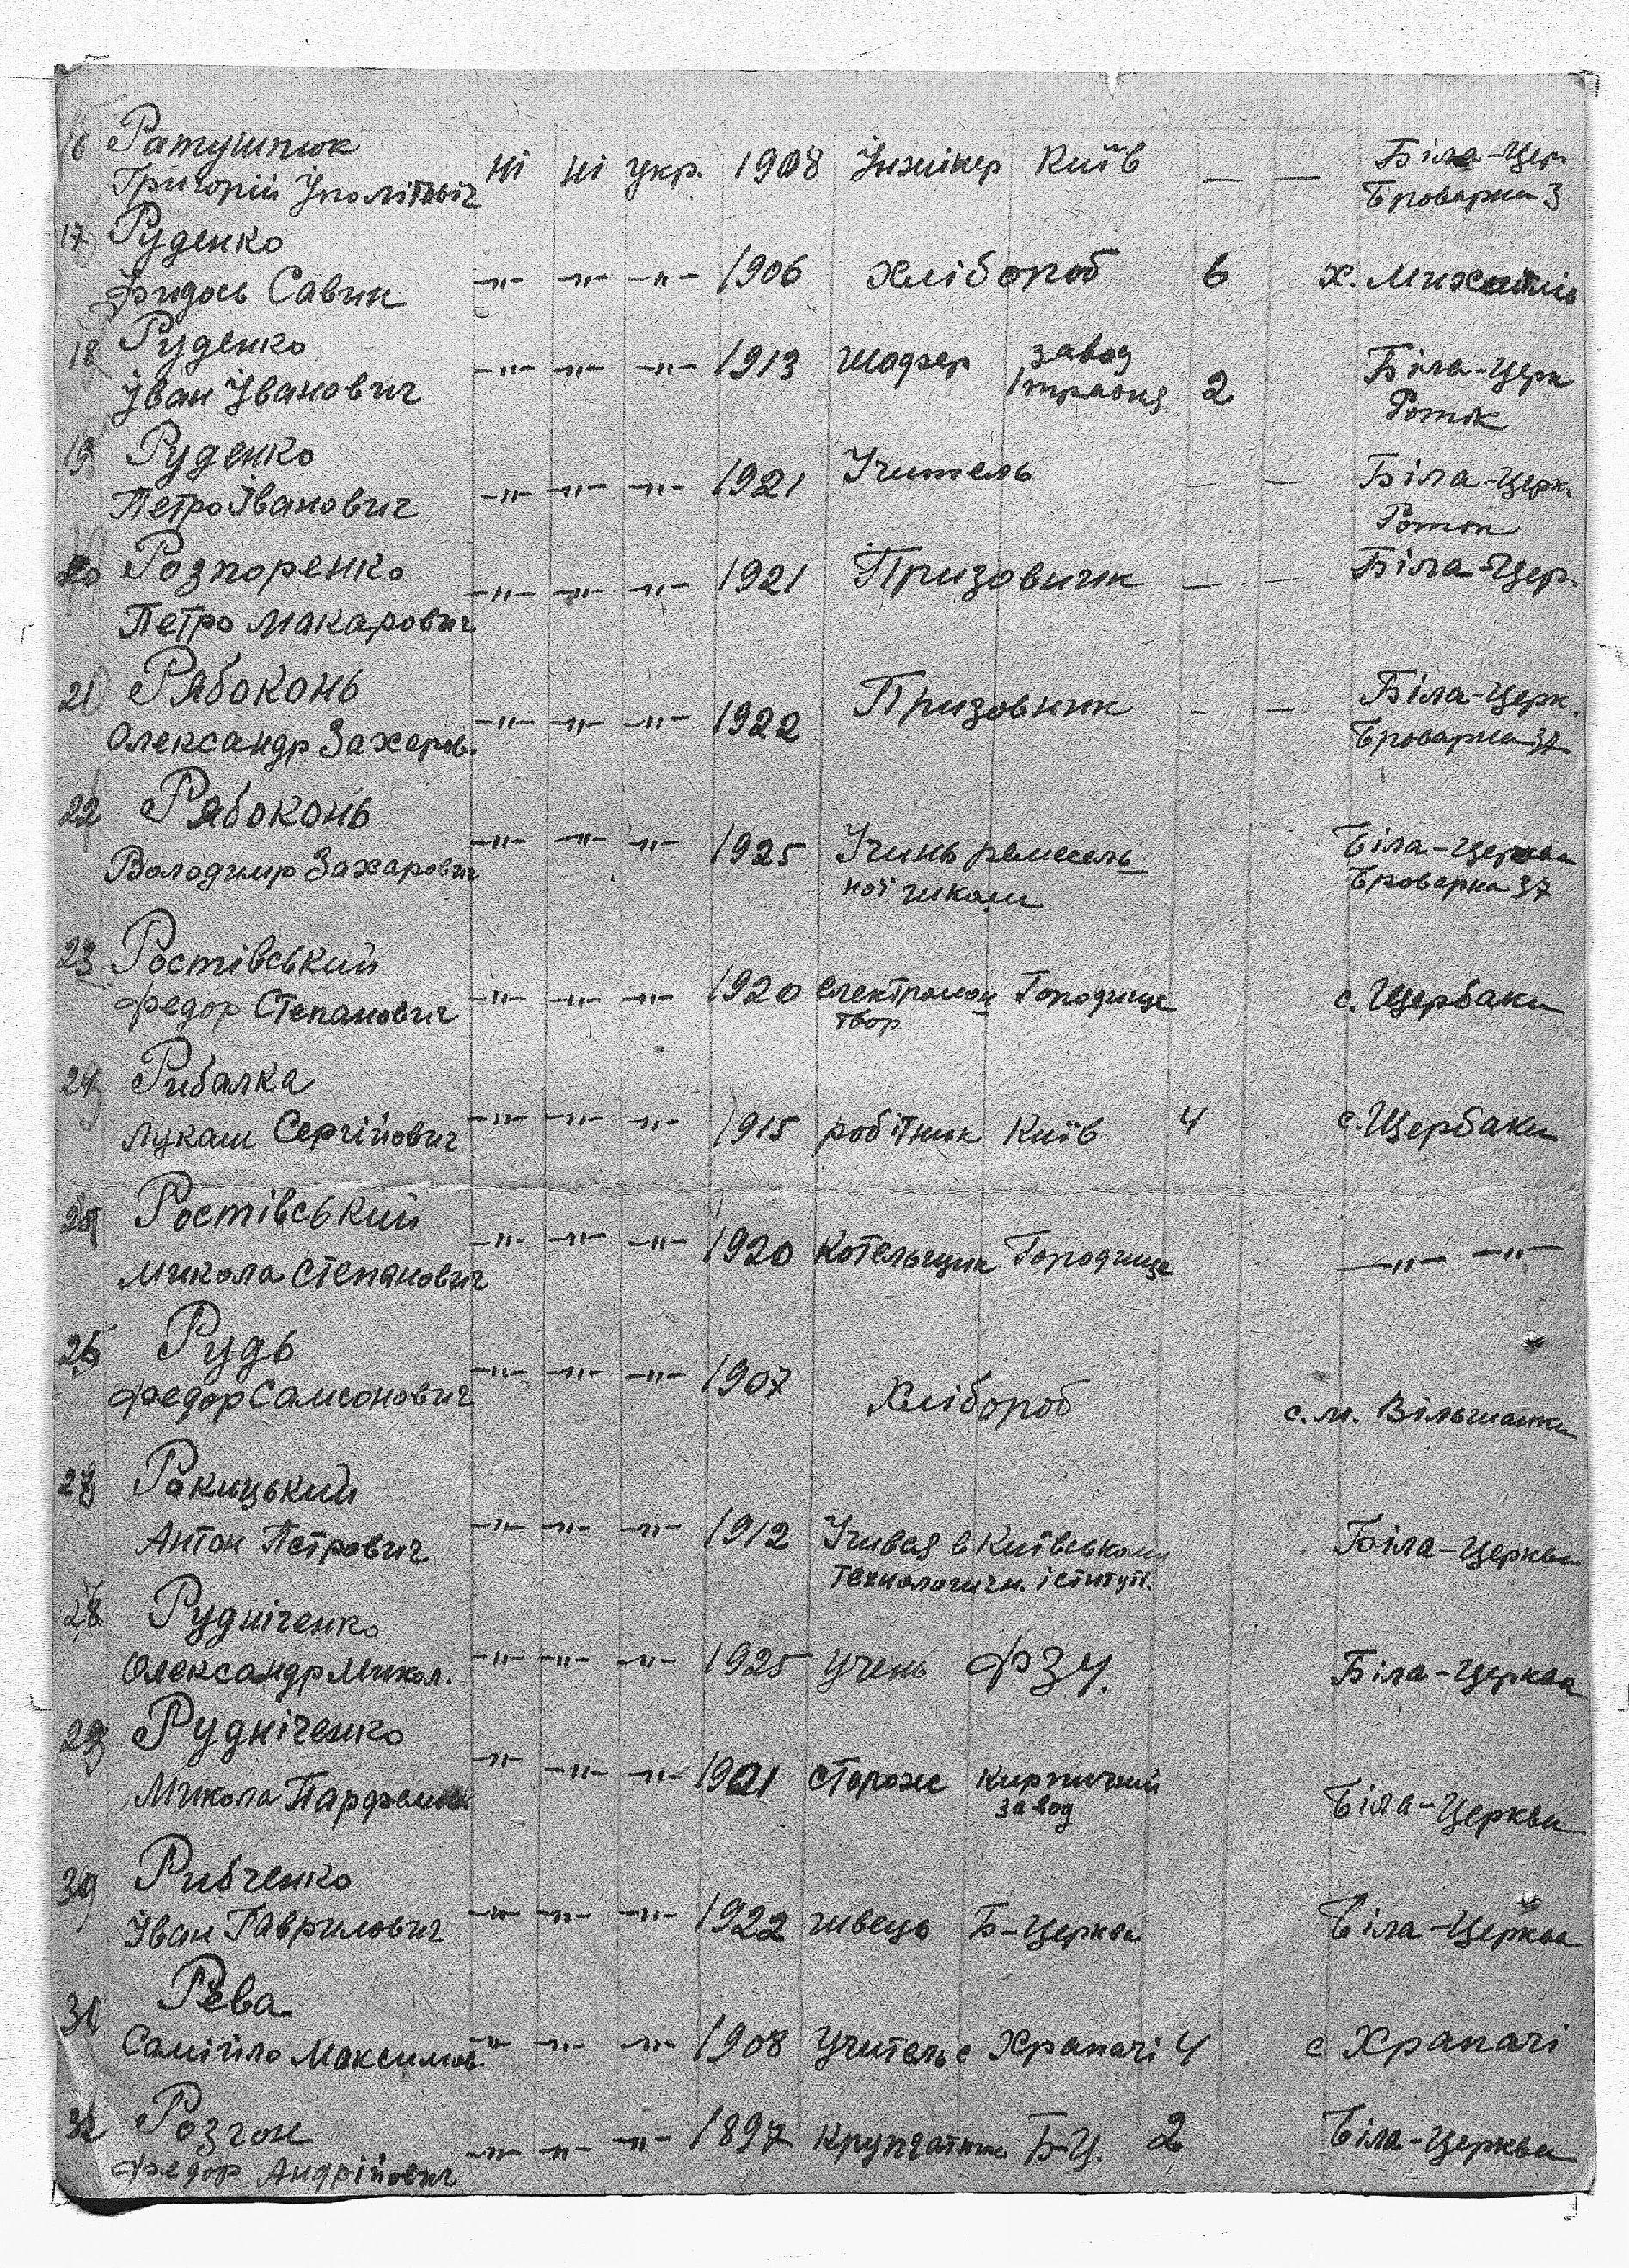 16 Ратушнюк
Григорій Іполітович ні ні укр. 1908 Інжінер Київ — — Біла-Цер.
Броварна 3
17 Руденко
Фидось Савин -"- -"- -"- 1906 хлібороб 6 х.
18 Руденко
Іван Іванович -"- -"- -"- 1913 шофер завод
1 травня 2 Біла-Церк
Роток
19 Руденко
Петро Іванович -"- -"- -"- 1921 Учитель — — Біла-Церк.
Роток
20 Розпоренко
Петро Макарович -"- -"- -"- 1921 Призовник — — Біла-Цер.
21 Рябоконь
Олександр Захаров. -"- -"- -"- 1922 Призовник — — Біла-Церк.
Броварна 37
22 Рябоконь
Володимир Захарович -"- -"- -"- 1925 Учинь ремесель
ної школи Біла-Церква
Броварна 37
23 Ростівський
Федор Степанович -"- -"- -"- 1920 електромон Городище с. Щербаки
твор
24 Рибалка
Лукаш Сергійович -"- -"- -"- 1915 робітник Київ 4 с. Щербаки
25 Ростівський
Микола Степанович -"- -"- -"- 1920 Котельщик Городище -"- -"-
26 Рудь
Федор Самсонович -"- -"- -"- 1907 Хлібороб с. м. Вільшанка
27 Ракицький
Антон Петрович -"- -"- -"- 1912 Учився в Київському
технологичн. іститут. Біла-Церква
28 Рудніченко
Олександр Микол. -"- -"- -"- 1925 учень ФЗУ. Біла-Церква
29 Рудніченко
Микола -"- -"- -"- 1901 сторож кирпичний
завод Біла-Церква
30 Рибченко
Іван Гаврилович -"- -"- -"- 1922 швець Б-Церква Біла-Церква
31 Рева
Самійло Максимов. -"- -"- -"- 1908 Учитель с Храпачі 4 с Храпачі
32 Розгон
Федор Андрійович -"- -"- -"- 1897 крупчатник Б-Ц. 2 Біла-Церква